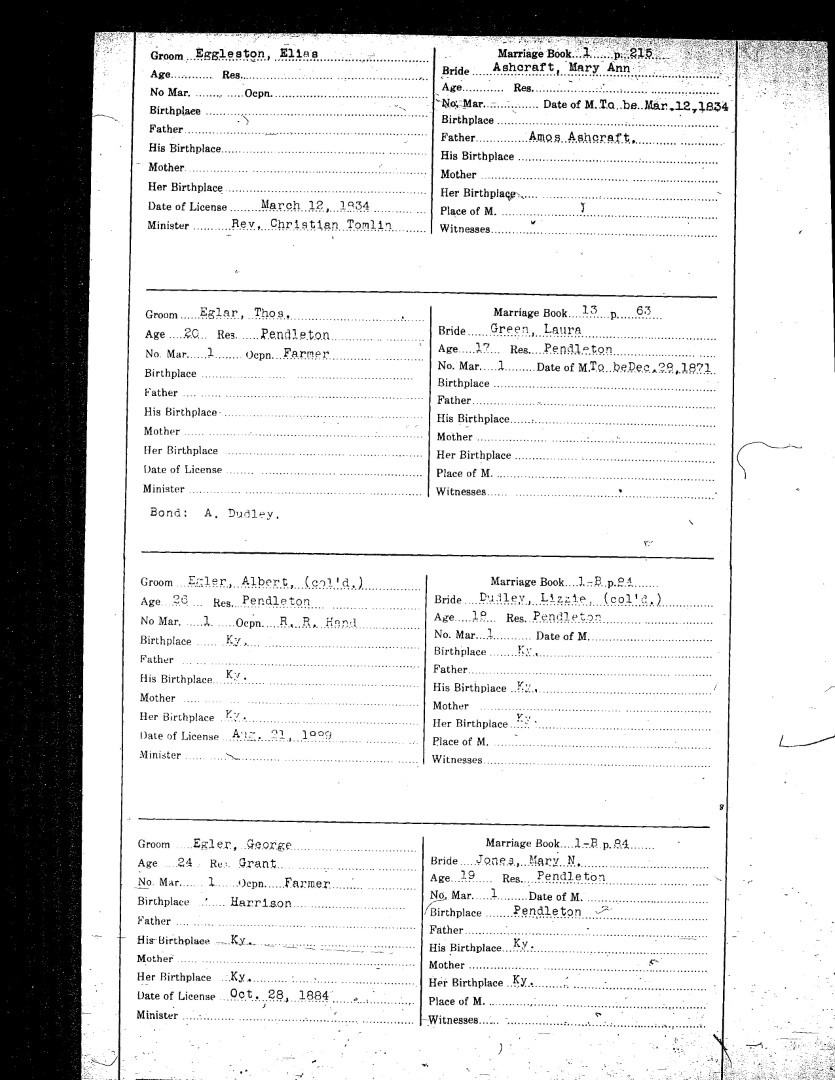 Groom Eggleston, Elias
Age Res.
No Mar. Ocpn.
Birthplace
Father
His Birthplace
Mother
Her Birthplace
Date of License March 12, 1834
Minister Rev. Christian Tomlin
Marriage Book 1 p. 215
Bride Ashcraft, Mary Ann
Age Res.
No. Mar. Date of M. To be Mar. 12, 1834
Birthplace
Father Amos Ashcraft.
His Birthplace
Mother
Her Birthplace
Place of M.
Witnesses
Groom Eglar, Thos.
Age 20 Res. Pendleton
No. Mar. 1 Ocpn. Farmer
Birthplace
Father
His Birthplace
Mother
Her Birthplace
Date of License
Minister
Bond: A. Dudley.
Marriage Book 13 p. 63
Bride Green, Laura
Age 17 Res. Pendleton
No. Mar. 1 Date of M. To be Dec. 28, 1871
Birthplace
Father
His Birthplace
Mother
Her Birthplace
Place of M.
Witnesses
Groom Egler, Albert, (col'd.)
Age 26 Res. Pendleton
No Mar. 1 Ocpn. R. R. Hand
Birthplace Ky.
Father
His Birthplace Ky.
Mother
Her Birthplace Ky.
Date of License Aug. 21,
Minister
Marriage Book 1-B p.
Bride Dudley, Lizzie, (col'd.)
Age 18 Res. Pendleton
No. Mar. 1 Date of M.
Birthplace Ky.
Father
His Birthplace Ky.
Mother
Her Birthplace Ky.
Place of M.
Witnesses
Groom Egler, George
Age 24 Res. Grant
No. Mar. 1 Ocpn. Farmer
Birthplace Harrison
Father
His Birthplace Ky.
Mother
Her Birthplace Ky.
Date of License Oct. 28, 1884
Minister
Marriage Book 1-B p. 84
Bride Jones, Mary N.
Age 19 Res. Pendleton
No. Mar. 1 Date of M.
Birthplace Pendleton
Father
His Birthplace Ky.
Mother
Her Birthplace Ky.
Place of M.
Witnesses